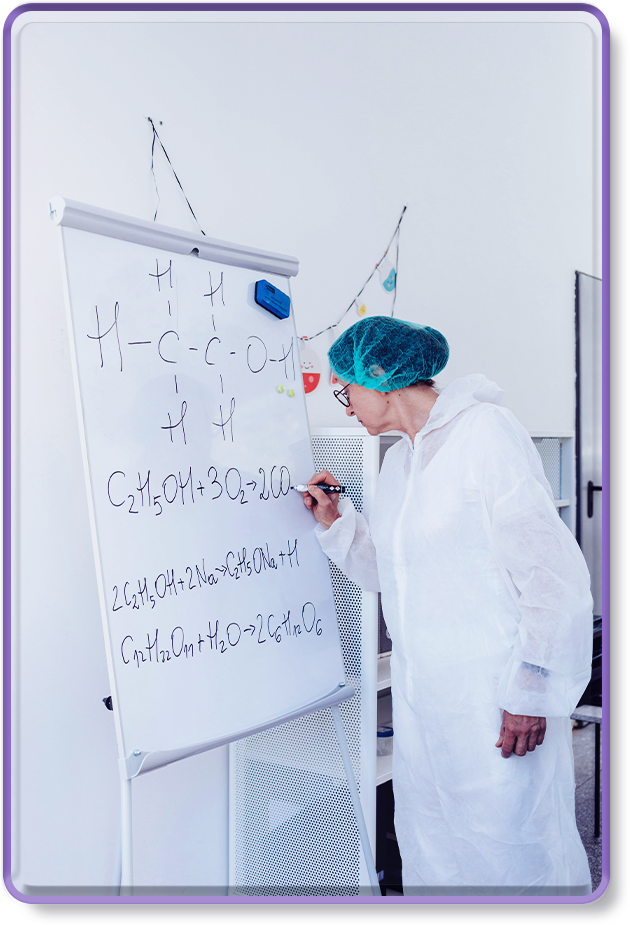 H H
H-C-C-O-H
H H
C₂H₅OH+3O₂→2CO
2C₂H₅OH+2Na→C₂H₅ONa+H
C₁₂H₂₂O₁₁+H₂O→2C₆H₁₂O₆